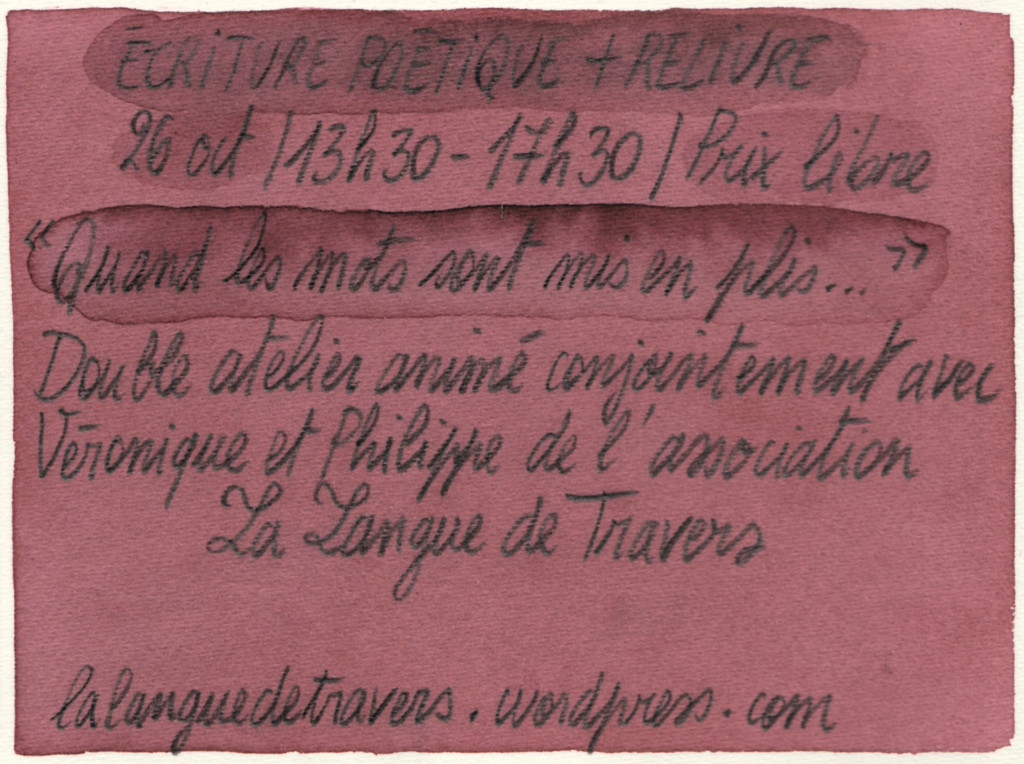 ÉCRITURE POÉTIQUE + RELIURE
26 oct / 13h30 - 17h30 / Prix libre
« Quand les mots sont mis en plis... »
Double atelier animé conjointement avec
Véronique et Philippe de l'association
La Langue de Travers
lalanguedetravers.wordpress.com